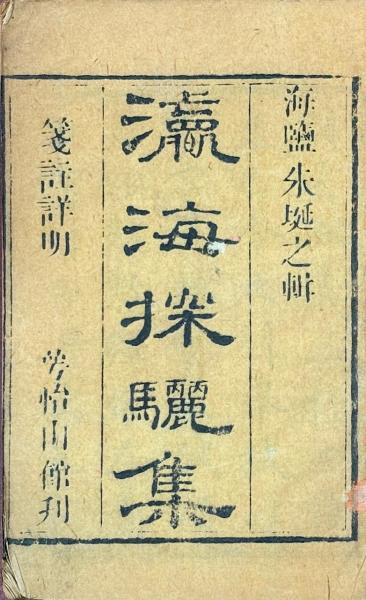 海鹽朱埏之輯
瀛海探驪集
箋註詳明 怡山館刊